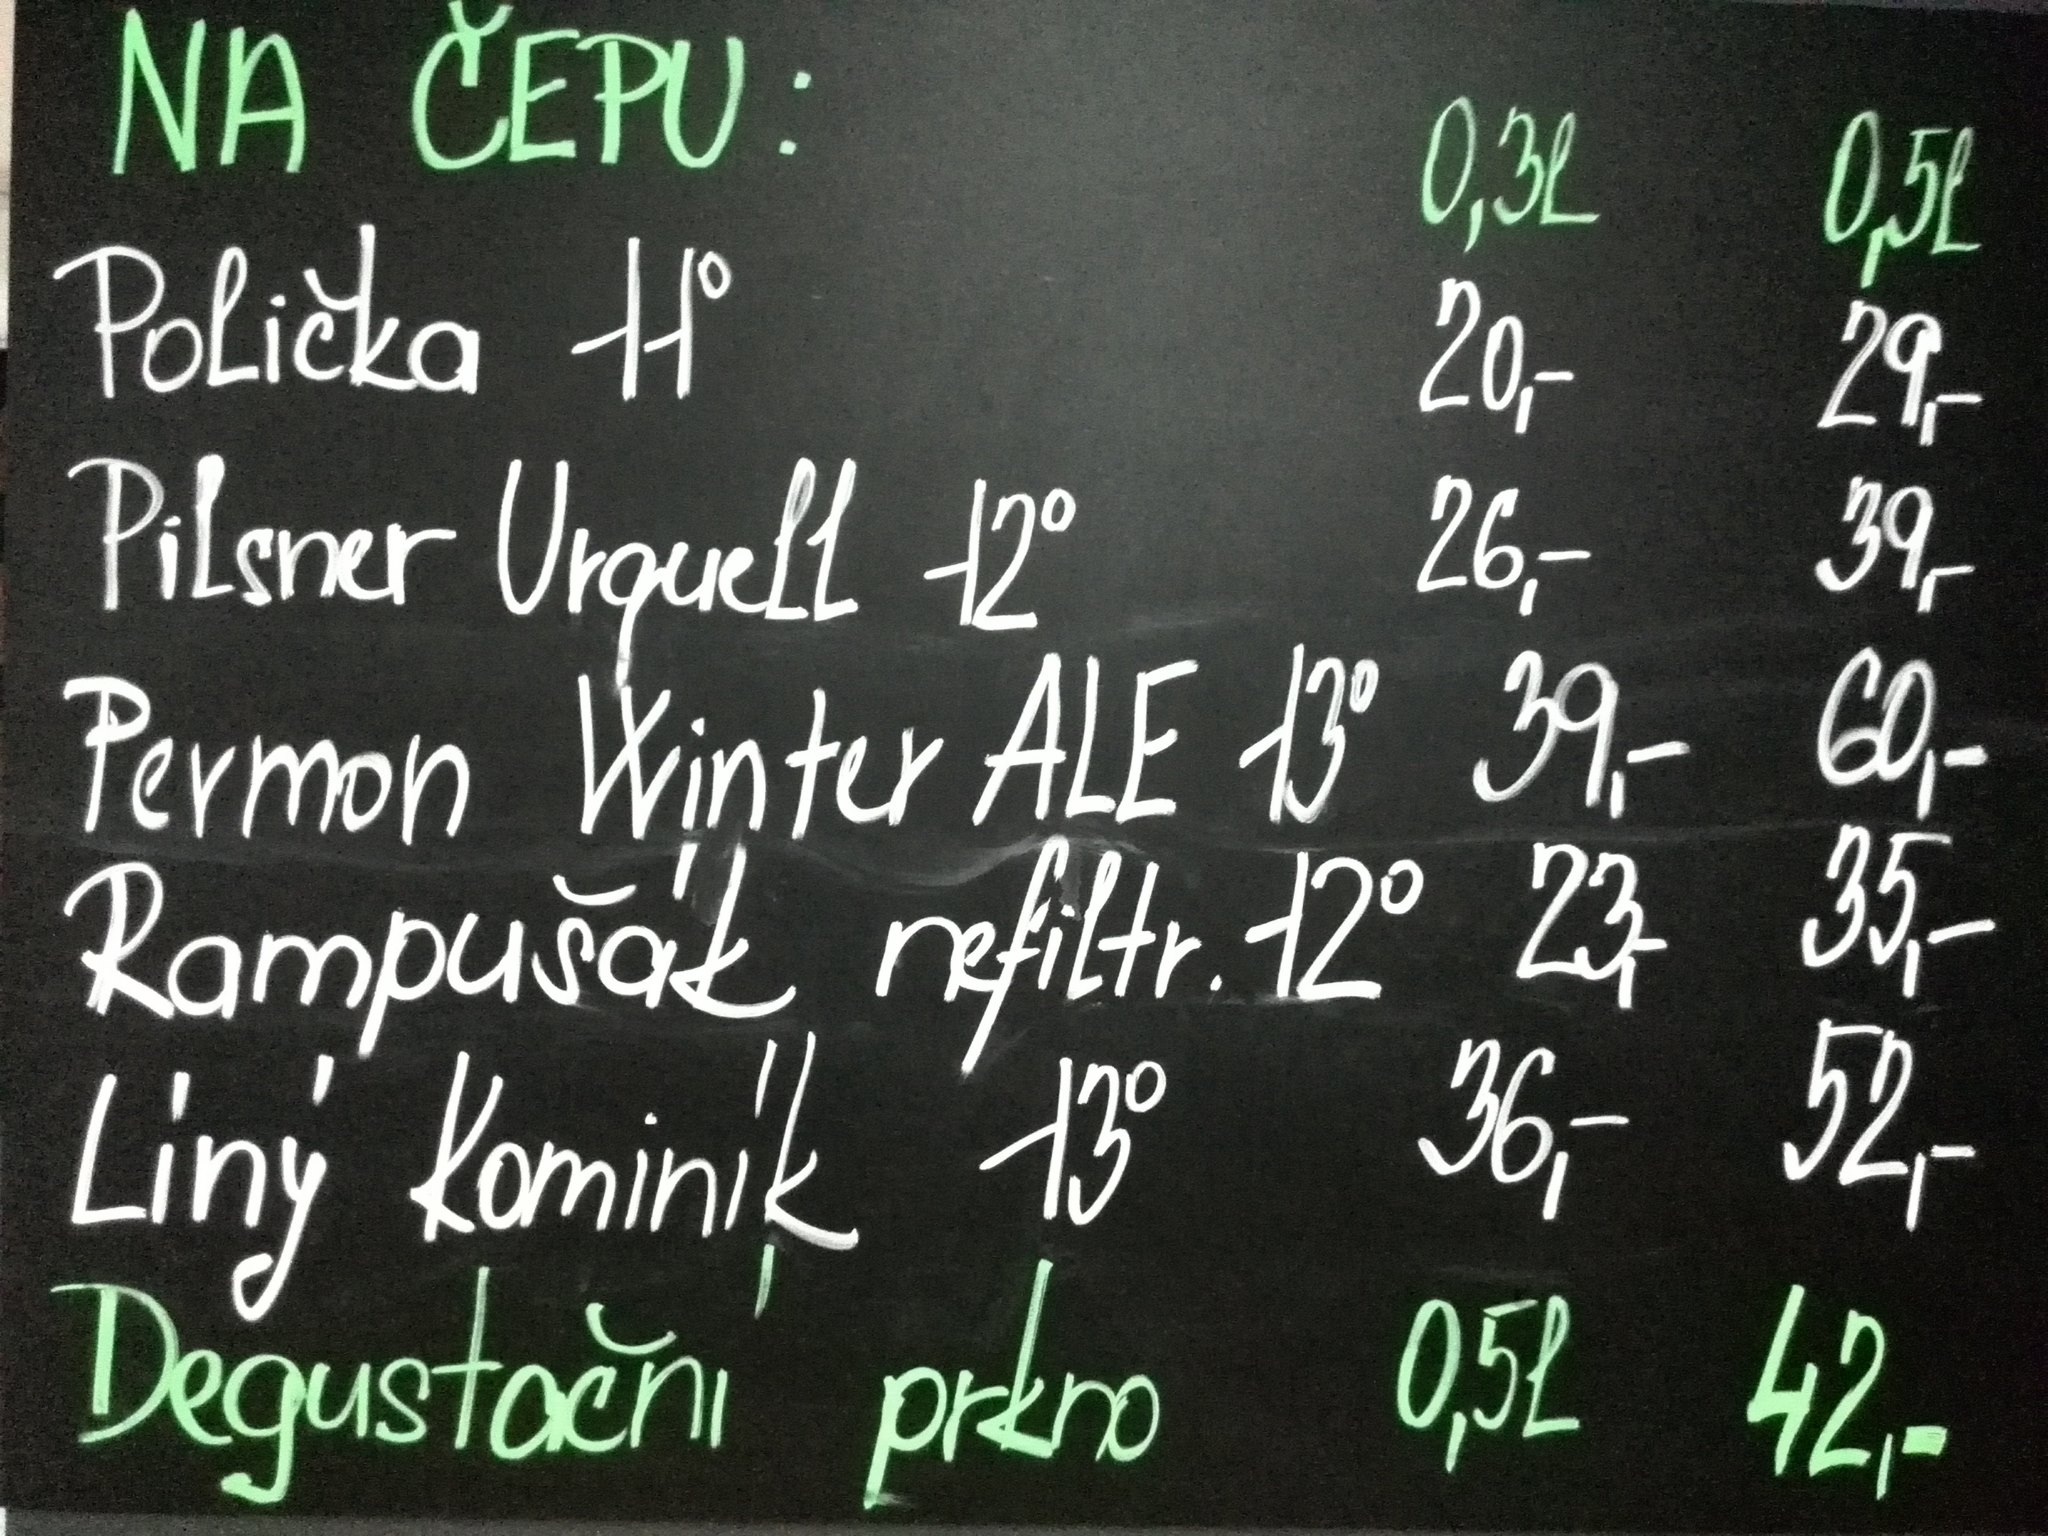 NA ČEPU: 0,3l 0,5l
Polička 11° 20,- 29,-
Pilsner Urquell 12° 26,- 39,-
Permon Winter ALE 13° 39,- 60,-
Rampušák nefiltr. 12° 23,- 35,-
Líný Kominík 13° 36,- 52,-
Degustační prkno 0,5l 42,-